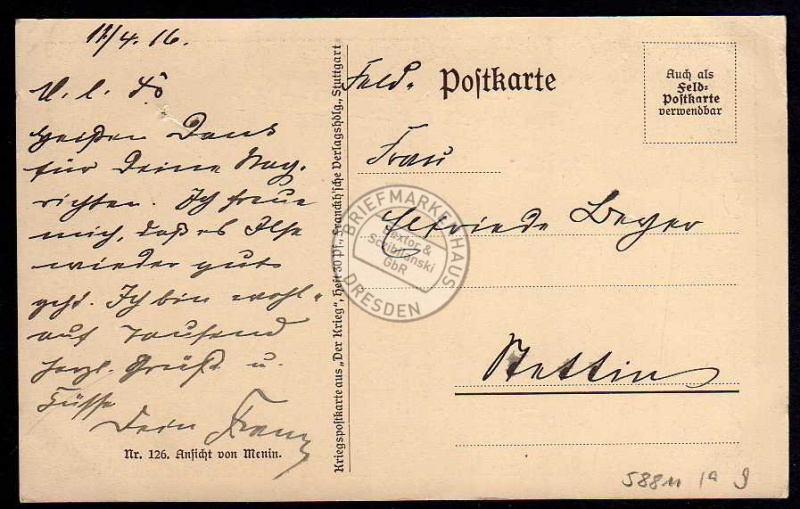 11/4.16.
M. l. Fö
Heißen Dank
für Deine Nach-
richten. Ich freue
mich, daß es Ilse
wieder gut
geht. Ich bin wohl-
auf Tausend
herzl. Grüße u.
Küsse
Dein Franz
Nr. 126. Ansicht von Menin.
Kriegspostkarte aus „Der Krieg“, Heft 30 Pf., Franckh'sche Verlagshdlg., Stuttgart
Feld. Postkarte
Auch als
Feld-
Postkarte
verwendbar
Frau
Elfriede Beyer
Stettin
BRIEFMARKENHAUS
&
GbR
DRESDEN